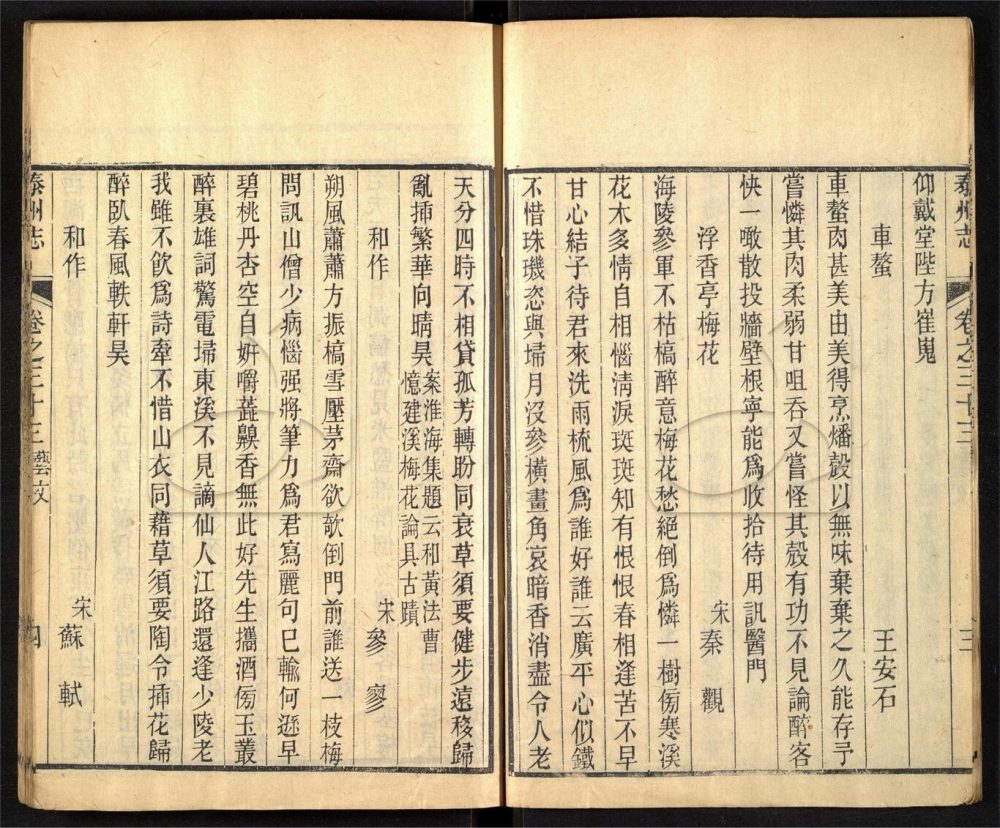 泰州志
卷之三十三
三
仰戴堂陛方崔嵬
車螯
王安石
車螯肉甚美由美得烹燔殼以無味棄棄之久能存予
嘗憐其肉柔弱甘咀吞又嘗怪其殼有功不見論醉客
快一噉散投牆壁根寧能爲收拾待用訊醫門
浮香亭梅花
宋秦觀
海陵參軍不枯槁醉意梅花愁絕倒爲憐一樹傍寒溪
花木多情自相惱清淚斑斑知有恨恨春相逢苦不早
甘心結子待君來洗雨梳風爲誰好誰云廣平心似鐵
不惜珠璣恣與埽月沒參橫畫角哀暗香消盡令人老
天分四時不相貸孤芳轉盼同衰草須要健步遠移歸
亂揷繁華向晴昊
案淮海集題云和黃法曹
憶建溪梅花論具古蹟
和作
宋參寥
朔風蕭蕭方振槁雪壓茅齋欲欹倒門前誰送一枝梅
問訊山僧少病惱强將筆力爲君寫麗句巳輸何遜早
碧桃丹杏空自妍嚼蕋齅香無此好先生攜酒傍玉叢
醉裏雄詞驚電埽東溪不見謫仙人江路還逢少陵老
我雖不飮爲詩牽不惜山衣同藉草須要陶令揷花歸
醉臥春風軼軒昊
和作
宋蘇軾
泰州志
卷之三十三藝文
四